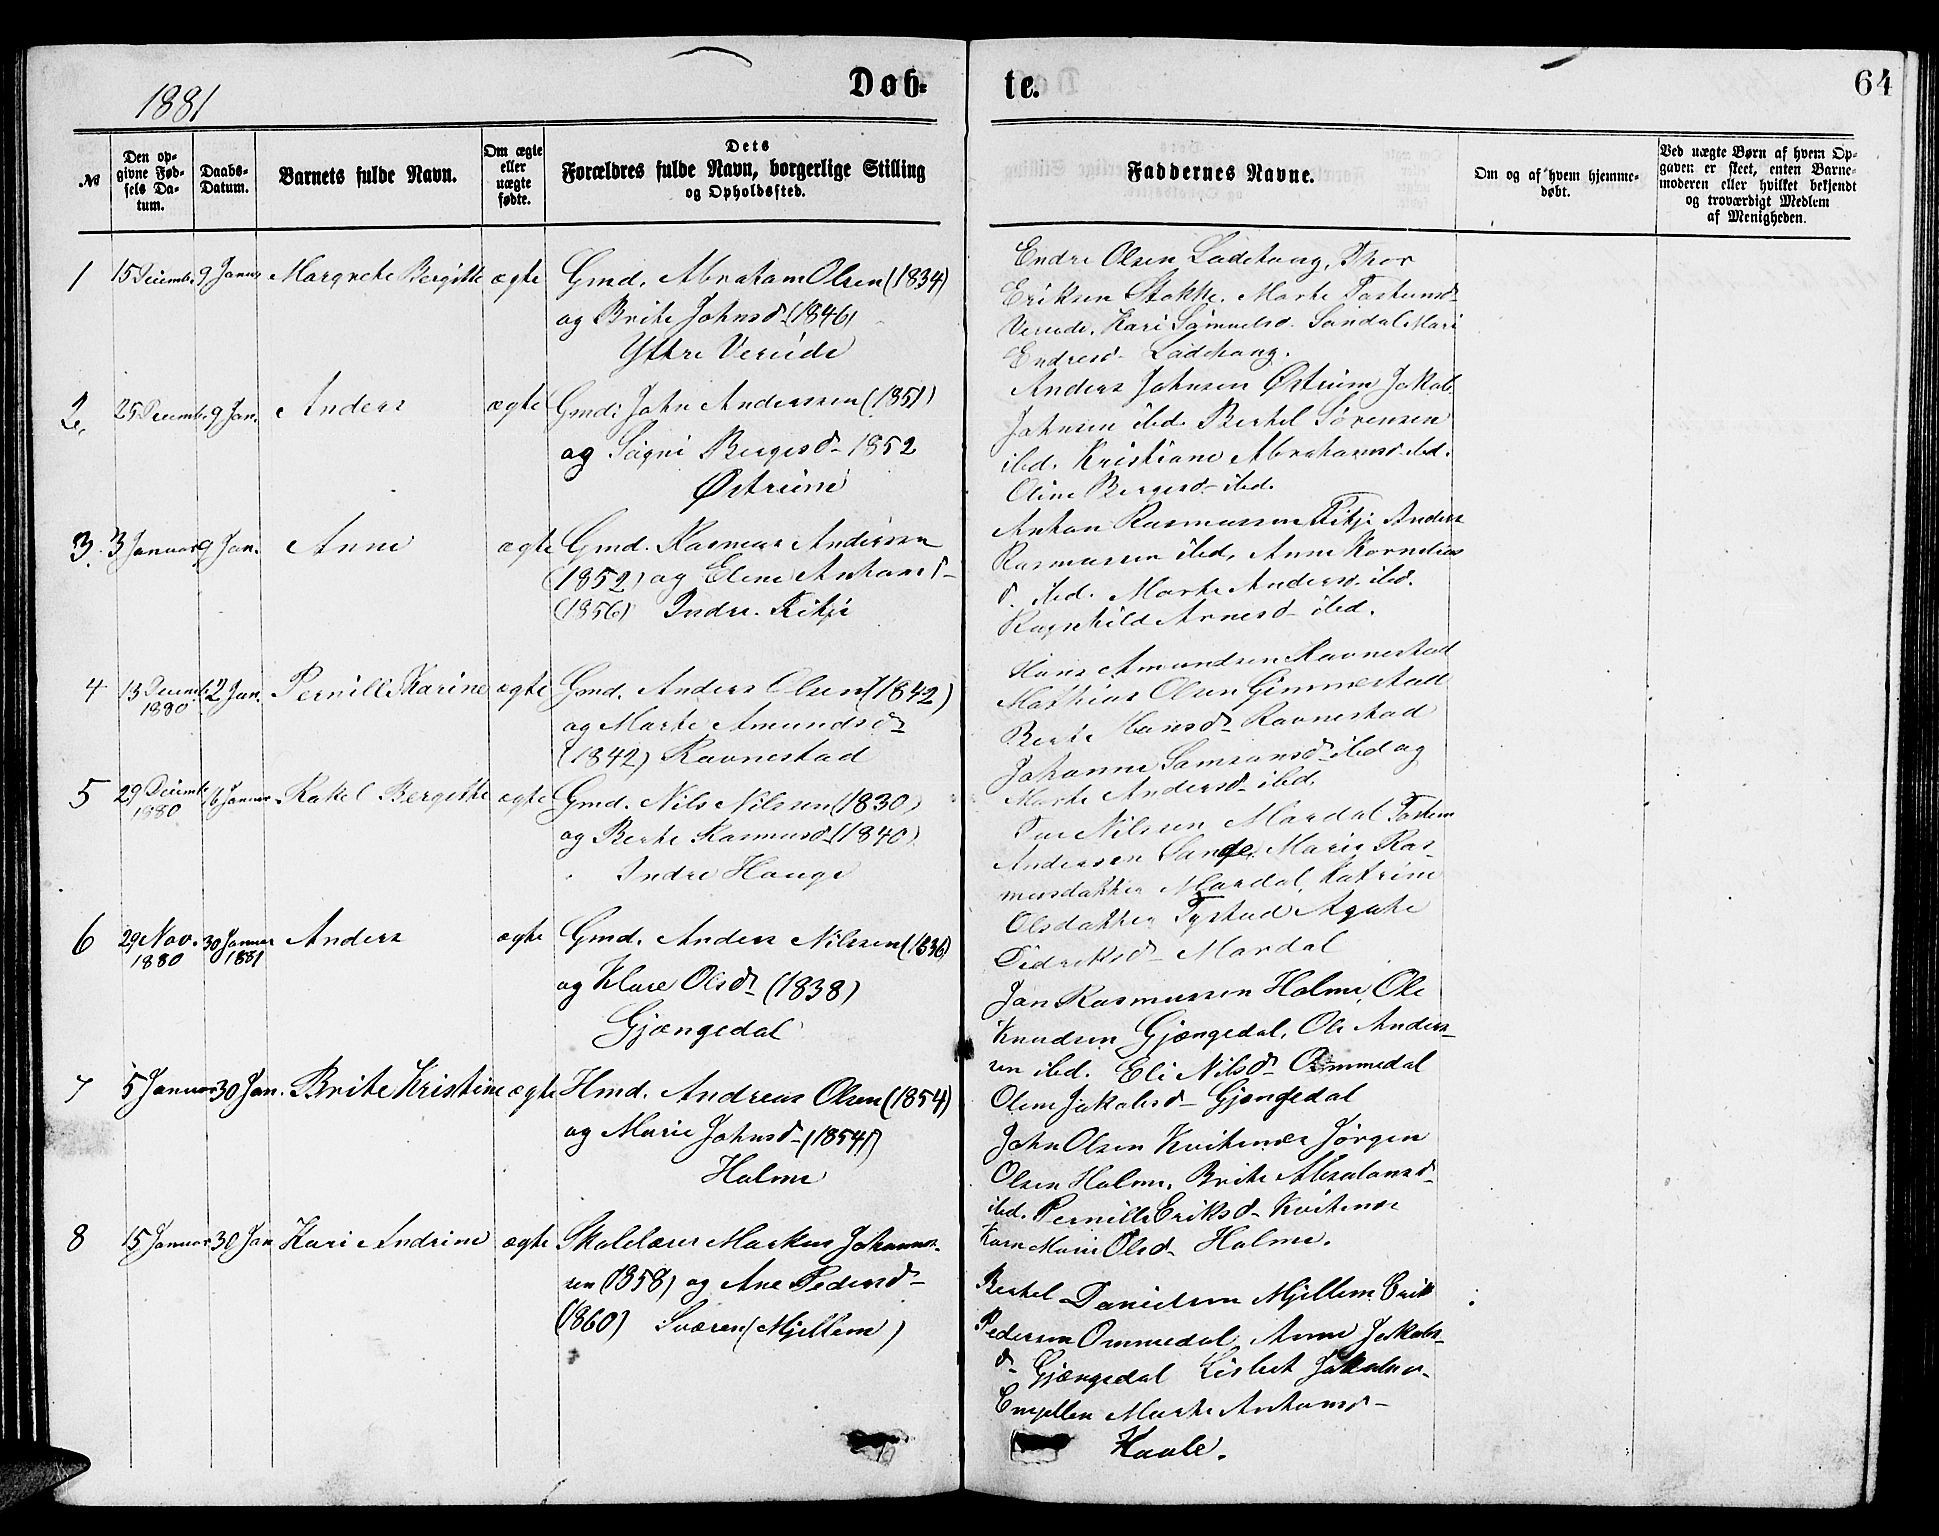 1881
Døb-
te.
64
№
Den op-
givne Fød-
sels Da-
tum.
Daabs-
Datum.
Barnets fulde Navn.
Om ægte
eller
uægte
fødte.
Dets
Forældres fulde Navn, borgerlige Stilling
og Opholdssted.
Faddernes Navne.
Om og af hvem hjemme-
døbt.
Ved uægte Børn af hvem Op-
gaven er skeet, enten Barne-
moderen eller hvilket bekjendt
og troværdigt Medlem
af Menigheden.
1 15 Decemb. 9 Januar Margrete Bergitte ægte Gmd. Abraham Olsen (1834)
og Brite Johnsd. (1846)
Ytre Vereide
Endre Olsen Ladehaug, Thor
Eriksen Stokke. Marte Tostensd-
Vereide. Kari Samuelsd. Sandal Mari
Endresd- Ladehaug.
2. 25 Decemb. 9 Jan. Anders ægte Gmd: John Anderssen (1851)
og Signi Bergesd- 1852
Østreim
Anders Johnsen Østreim Jakob
Johnsen ibd. Bertel Sørensen
ibd. Kristiane Abrahamsd. ibd.
Oline Bergesd- ibd.
3. 3 Januar 9 Jan. Anne ægte Gmd. Rasmus Andersen
(1852) og Elene Antonsd-
(1856) Indre. Fitje
Anton Rasmussen Fitje Anders
Rasmussen ibd, Anne Kornelius
d. ibd. Marte Andersd- ibd.
Ragnhild Arnesd- ibd.
4 13 Decemb. 1880 2 Jan. Pernille Karine ægte Gmd. Anders Olsen (1842)
og Marte Amundsd-
(1842) Ravnestad
Hans Amundsen Ravnestad
Mathias Olsen Gimmestad
Berte Hansd- Ravnestad
Johanne Samsonsd- ibd og
Marte Andersd- ibd.
5 29 Decemb. 1880 16 Januar Rakel Bergitte ægte Gmd. Nils Nilssen (1830)
og Berte Rasmusd. (1840)
Indre Hauge
Nilssen Mardal Tosten
Andersen Sande, Marie Ras-
musdatter Mardal, Katrine
Olsdatter Tystad Agate
Didriksd- Mardal
6 29 Nov. 1880 30 Januar 1881 Anders ægte Gmd. Anders Nilssen (1836)
og Klare Olsd- (1838)
Gjængedal
Jan Rasmussen Holme, Ole
Knudsen Gjængedal, Ole Anders-
sen ibd. Eli Nilsd- Ommedal
Oline Jakobsd- Gjængedal
7 5 Januar 30 Jan. Brite Kristine ægte Hmd. Andreas Olsen (1854)
og Marie Johnsd- (1854)
Holme
John Olsen Kvitenes Jørgen
Olsen Holme. Brite Absalonsd-
ibd. Pernille Eriksd- Kvitenes
Karn Marie Olsd- Holme.
8 15 Januar 30 Jan Kari Andrine ægte Skolelærer Markus Johannes-
sen (1858) og Ane Pedersd-
(1860) Sværen (Mjellem)
Bertel Danielsen Mjellem Erik
Pedersen Ommedal, Anne Jakobs-
d- Gjængedal Lisbet Jakobsd-
Emjellen Marte Antonsd-
Kaale.